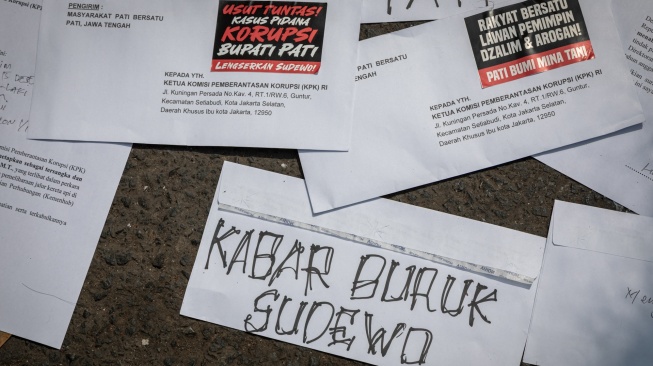 PENGIRIM :
MASYARAKAT PATI BERSATU
PATI, JAWA TENGAH
USUT TUNTAS!
KASUS PIDANA
KORUPSI
BUPATI PATI
LENGSERKAN SUDEWO!
KEPADA YTH.
KETUA KOMISI PEMBERANTASAN KORUPSI (KPK) RI
Jl. Kuningan Persada No.Kav. 4, RT.1/RW.6, Guntur,
Kecamatan Setiabudi, Kota Jakarta Selatan,
Daerah Khusus Ibu kota Jakarta, 12950
PATI BERSATU
TENGAH
RAKYAT BERSATU
LAWAN PEMIMPIN
DZALIM & AROGAN!
PATI BUMI MINA TANI
KEPADA YTH.
KETUA KOMISI PEMBERANTASAN KORUPSI (KPK) RI
Jl. Kuningan Persada No.Kav. 4, RT.1/RW.6, Guntur,
Kecamatan Setiabudi, Kota Jakarta Selatan,
Daerah Khusus Ibu kota Jakarta, 12950
Komisi Pemberantasan Korupsi (KPK)
sebagai tersangka dan
M.T., yang terlibat dalam perkara
pemeliharaan jalur kereta api di
Perhubungan (Kemenhub)
serta terkabulkannya
KABAR BURUK
SUDEWO